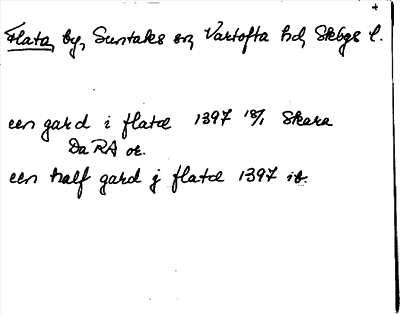 Flata, by, Suntaks sn, Vartofta hd, Skbgs l.
een gard i flatæ 1397 18/1 Skara
DaRA or.
een half gard j flatæ 1397 ib.